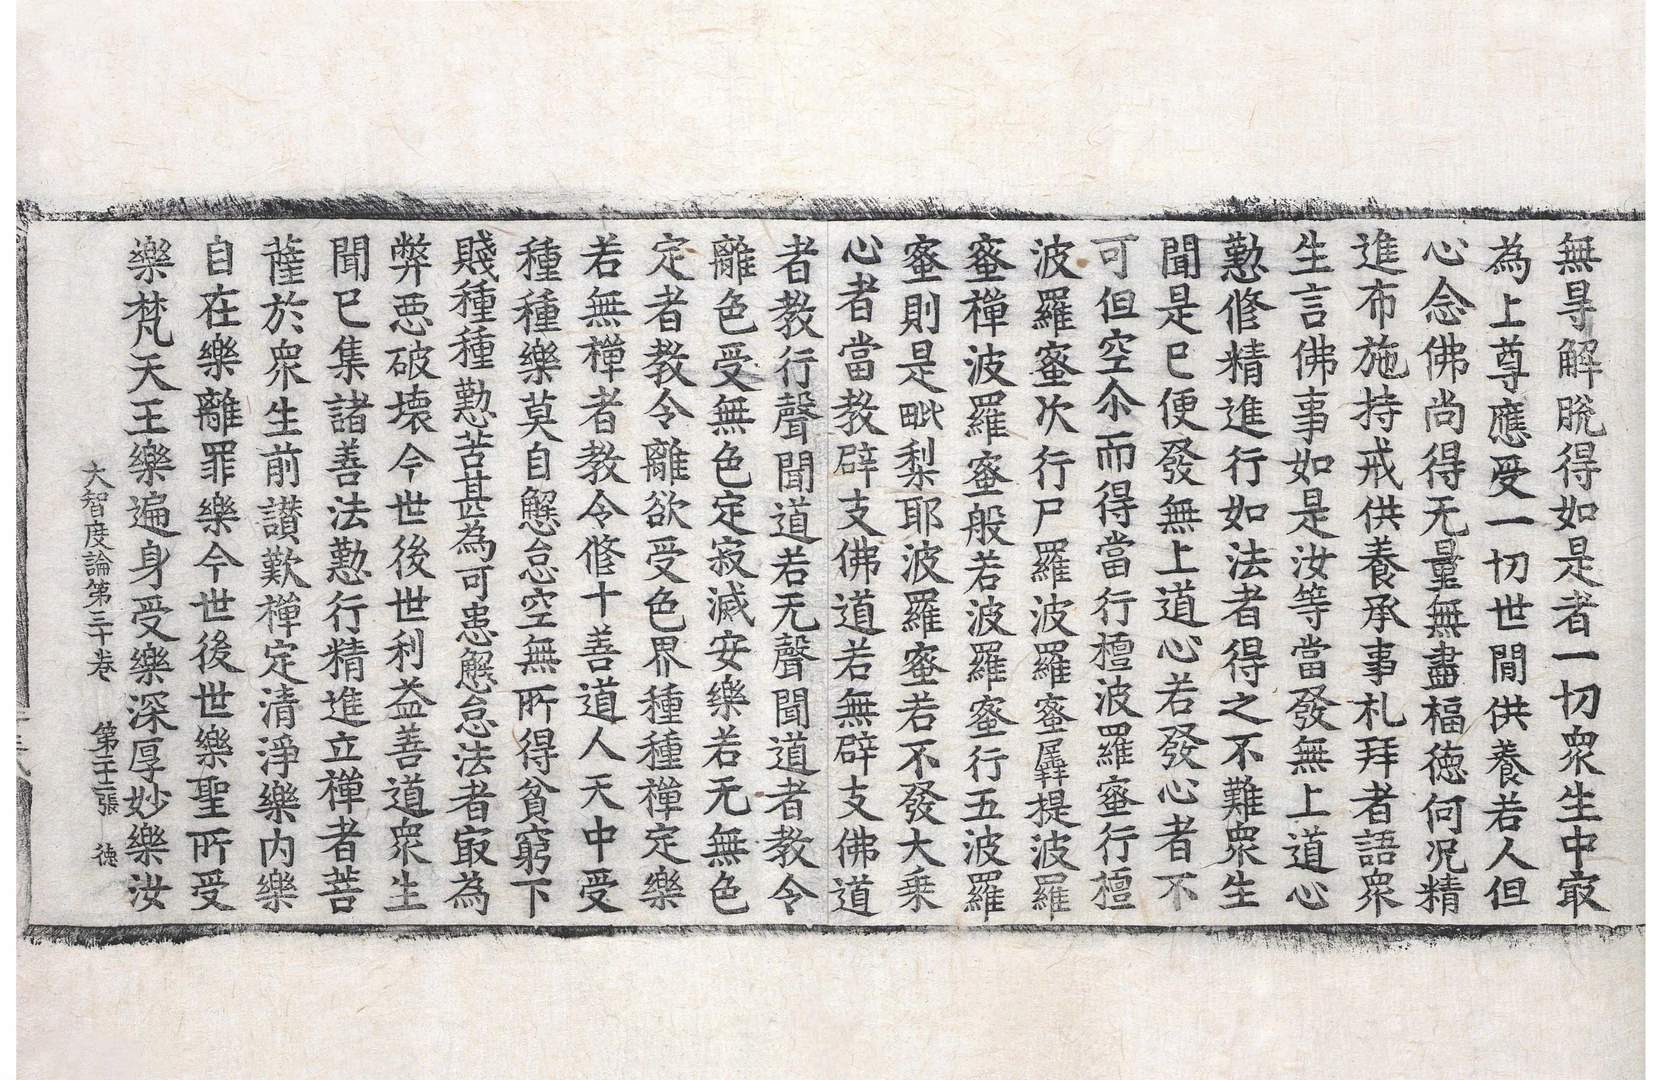 無㝵解脫得如是者一切衆生中㝡
為上尊應受一切世閒供養若人但
心念佛尚得无量無盡福德何况精
進布施持戒供養承事礼拜者語衆
生言佛事如是汝等當發無上道心
懃修精進行如法者得之不難衆生
聞是已便發無上道心若發心者不
可但空尒而得當行檀波羅蜜行檀
波羅蜜次行尸羅波羅蜜羼提波羅
蜜禪波羅蜜般若波羅蜜行五波羅
蜜則是毗梨耶波羅蜜若不發大乗
心者當教辟支佛道若無辟支佛道
者教行聲聞道若无聲聞道者教令
離色受無色定寂滅安樂若无無色
定者教令離欲受色界種種禪定樂
若無禪者教令修十善道人天中受
種種樂莫自懈怠空無所得貧窮下
賤種種懃苦甚為可患懈怠法者㝡為
弊惡破壞今世後世利益善道衆生
聞已集諸善法懃行精進立禪者菩
薩於衆生前讃歎禪定清淨樂内樂
自在樂離罪樂今世後世樂聖所受
樂梵天王樂遍身受樂深厚妙樂汝
大智度論第三十卷 第二十二張 德